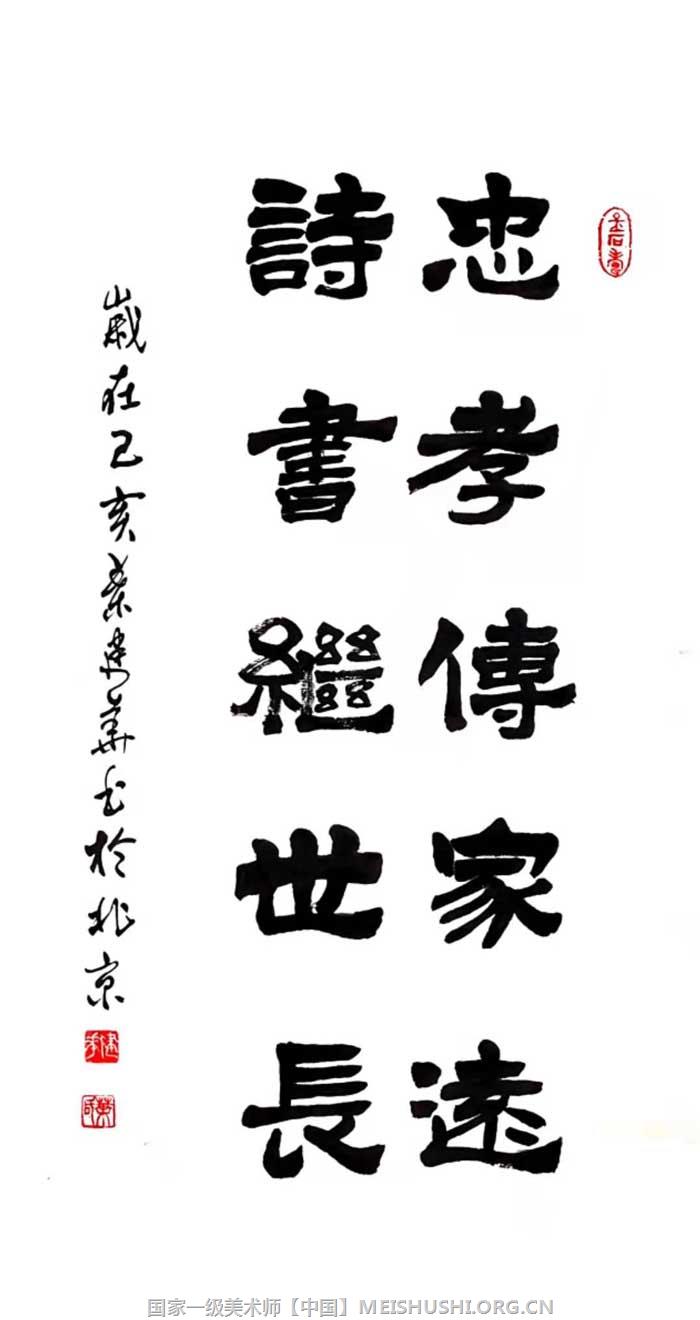 忠孝傳家遠
詩書繼世長
歲在己亥葉建華书於北京
国家一级美术师【中国】MEISHUSHI.ORG.CN